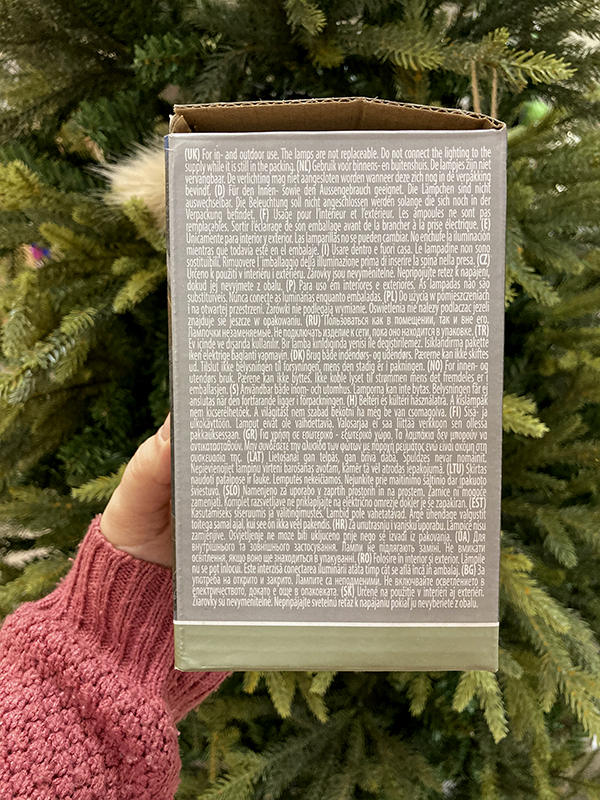 (UK) For in- and outdoor use. The lamps are not replaceable. Do not connect the lighting to the
supply while it is still in the packing. (NL) Gebruik voor binnens- en buitenshuis. De lampjes zijn niet
vervangbaar. De verlichting mag niet aangesloten worden wanneer deze zich nog in de verpakking
bevindt. (D) Für den Innen- sowie den Aussengebrauch geeignet. Die Lämpchen sind nicht
auswechselbar. Die Beleuchtung soll nicht angeschlossen werden solange die sich noch in der
Verpackung befindet. (F) Usage pour l'intérieur et l'extérieur. Les ampoules ne sont pas
remplaçables. Sortir l'éclairage de son emballage avant de la brancher à la prise électrique. (E)
Únicamente para interior y exterior. Las lamparillas no se pueden cambiar. No enchufe la iluminación
mientras que todavía esté en el embalaje. (I) Usare dentro e fuori casa. Le lampadine non sono
sostituibili. Rimuovere l'imballaggio della illuminazione prima di inserire la spina nella presa. (CZ)
Určeno k použití v interiéru i exteriéru. Žárovky jsou nevyměnitelné. Nepřipojujte řetěz k napájení,
dokud jej nevyjmete z obalu. (P) Para uso em interiores e exteriores. As lampadas não são
substituíveis. Nunca conecte as luminárias enquanto embaladas. (PL) Do użycia w pomieszczeniach
i na otwartej przestrzeni. Żarówki nie podlegają wymianie. Oświetlenia nie należy podłączać jeżeli
znajduje się jeszcze w opakowaniu. (RU) Пользоваться как в помещении, так и вне его.
Лампочки незаменяемые. Не подключать изделие к сети, пока оно находится в упаковке. (TR)
Ev içinde ve dışarıda kullanılır. Bir lamba kırıldığında yenisi ile değiştirilemez. Işıklandırma pakette
iken elektriğe bağlantı yapmayın. (DK) Brug både indendørs- og udendørs. Pærerne kan ikke skiftes
ud. Tilslut ikke belysningen til forsyningen, mens den stadig er i pakningen. (NO) For innen- og
utendørs bruk. Pærene kan ikke byttes. Ikke koble lyset til strømmen mens det fremdeles er i
emballasjen. (S) Användbar både inom- och utomhus. Lamporna kan inte bytas. Belysningen får ej
anslutas när den fortfarande ligger i förpackningen. (H) Beltéri és kültéri használatra. A kislámpák
nem kicserélhetőek. A világítást nem szabad bekötni ha még be van csomagolva. (FI) Sisä- ja
ulkokäyttöön. Lamput eivät ole vaihdettavia. Valosarjaa ei saa liittää verkkoon sen ollessa
pakkauksessaan. (GR) Για χρήση σε εσωτερικό - εξωτερικό χώρο. Τα λαμπάκια δεν μπορούν να
αντικατασταθούν. Μην συνδέσετε την αλυσίδα των φώτων με παροχή ρεύματος ενώ είναι ακόμη στη
συσκευασία της. (LAT) Lietošanai gan telpās, gan brīvā dabā. Spuldzes nevar nomainīt.
Nepievienojiet lampiņu virteni barošanas avotam, kamēr tā vēl atrodas iepakojumā. (LTU) Skirtas
naudoti patalpose ir lauke. Lemputės nekeičiamos. Nejunkite prie maitinimo šaltinio dar įpakuoto
šviestuvo. (SLO) Namenjeno za uporabo v zaprtih prostorih in na prostem. Žarnice ni mogoče
zamenjati. Komplet razsvetljave ne priklapljajte na električno omrežje dokler je še zapakiran. (EST)
Kasutamiseks siseruumis ja välitingimustes. Lambid pole vahetatavad. Ärge ühendage valgusti
toitega samal ajal, kui see on ikka veel pakendis. (HR) Za unutrašnju i vanjsku uporabu. Lampice nisu
zamjenjive. Osvjetljenje ne može biti uključeno prije nego se izvadi iz pakovanja. (UA) Для
внутрішнього та зовнішнього застосування. Лампи не підлягають заміні. Не вмикати
освітлення, якщо воно ще знаходиться в упакуванні. (RO) Folosire in interior si exterior. Lămpile
nu se pot înlocui. Este interzisă conectarea iluminării atâta timp cât se află încă în ambalaj. (BG) За
употреба на открито и закрито. Лампите са неподменими. Не включвайте осветлението в
електричеството, докато е още в опаковката. (SK) Určené na použitie v interiéri aj exteriéri.
Žiarovky sú nevymeniteľné. Nepripájajte svetelnú reťaz k napájaniu pokiaľ ju nevyberiete z obalu.